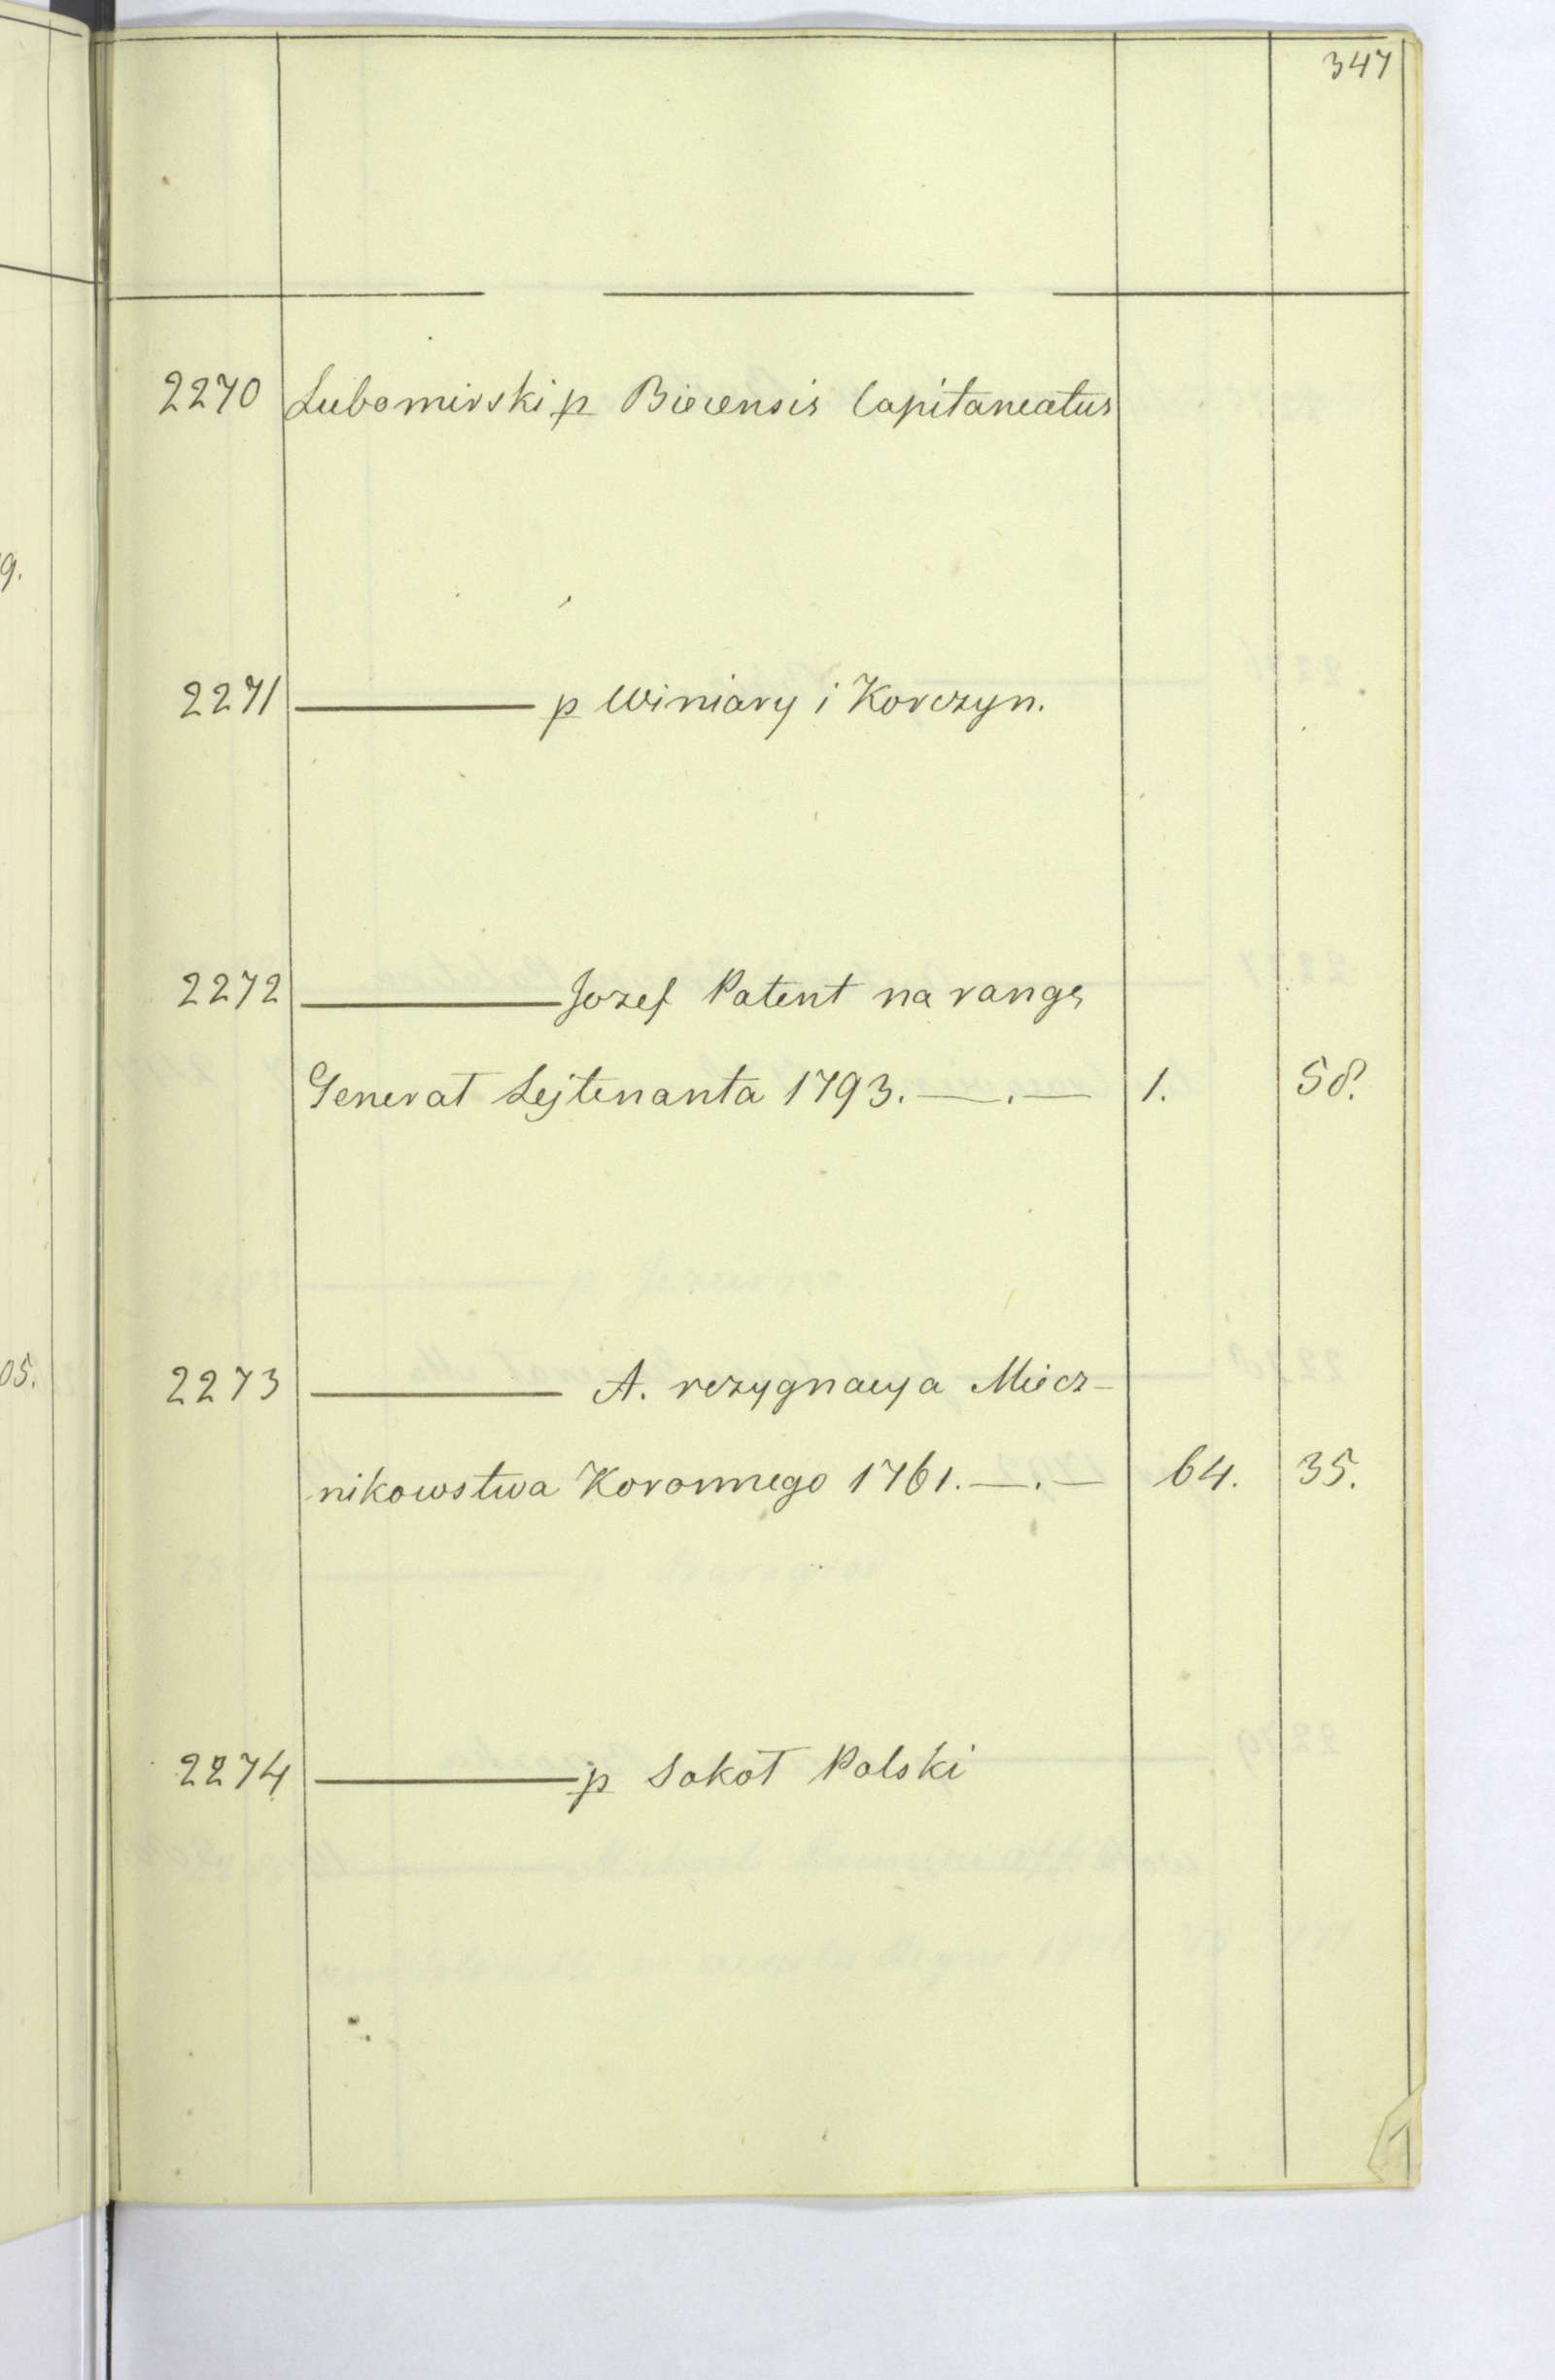 347
2270 Lubomirski p Biecensis Capitaneatus
9.
2271 ——— p Winiary i Korczyn.
2272 ——— Jozef Patent na rangę
Generał Lejtenanta 1793. —.— 1. 58.
2273 ——— A. rezygnacya Miecz-
05.
nikowstwa Koronnego 1761. —.— 64. 35.
2274 ——— p Sokoł Polski